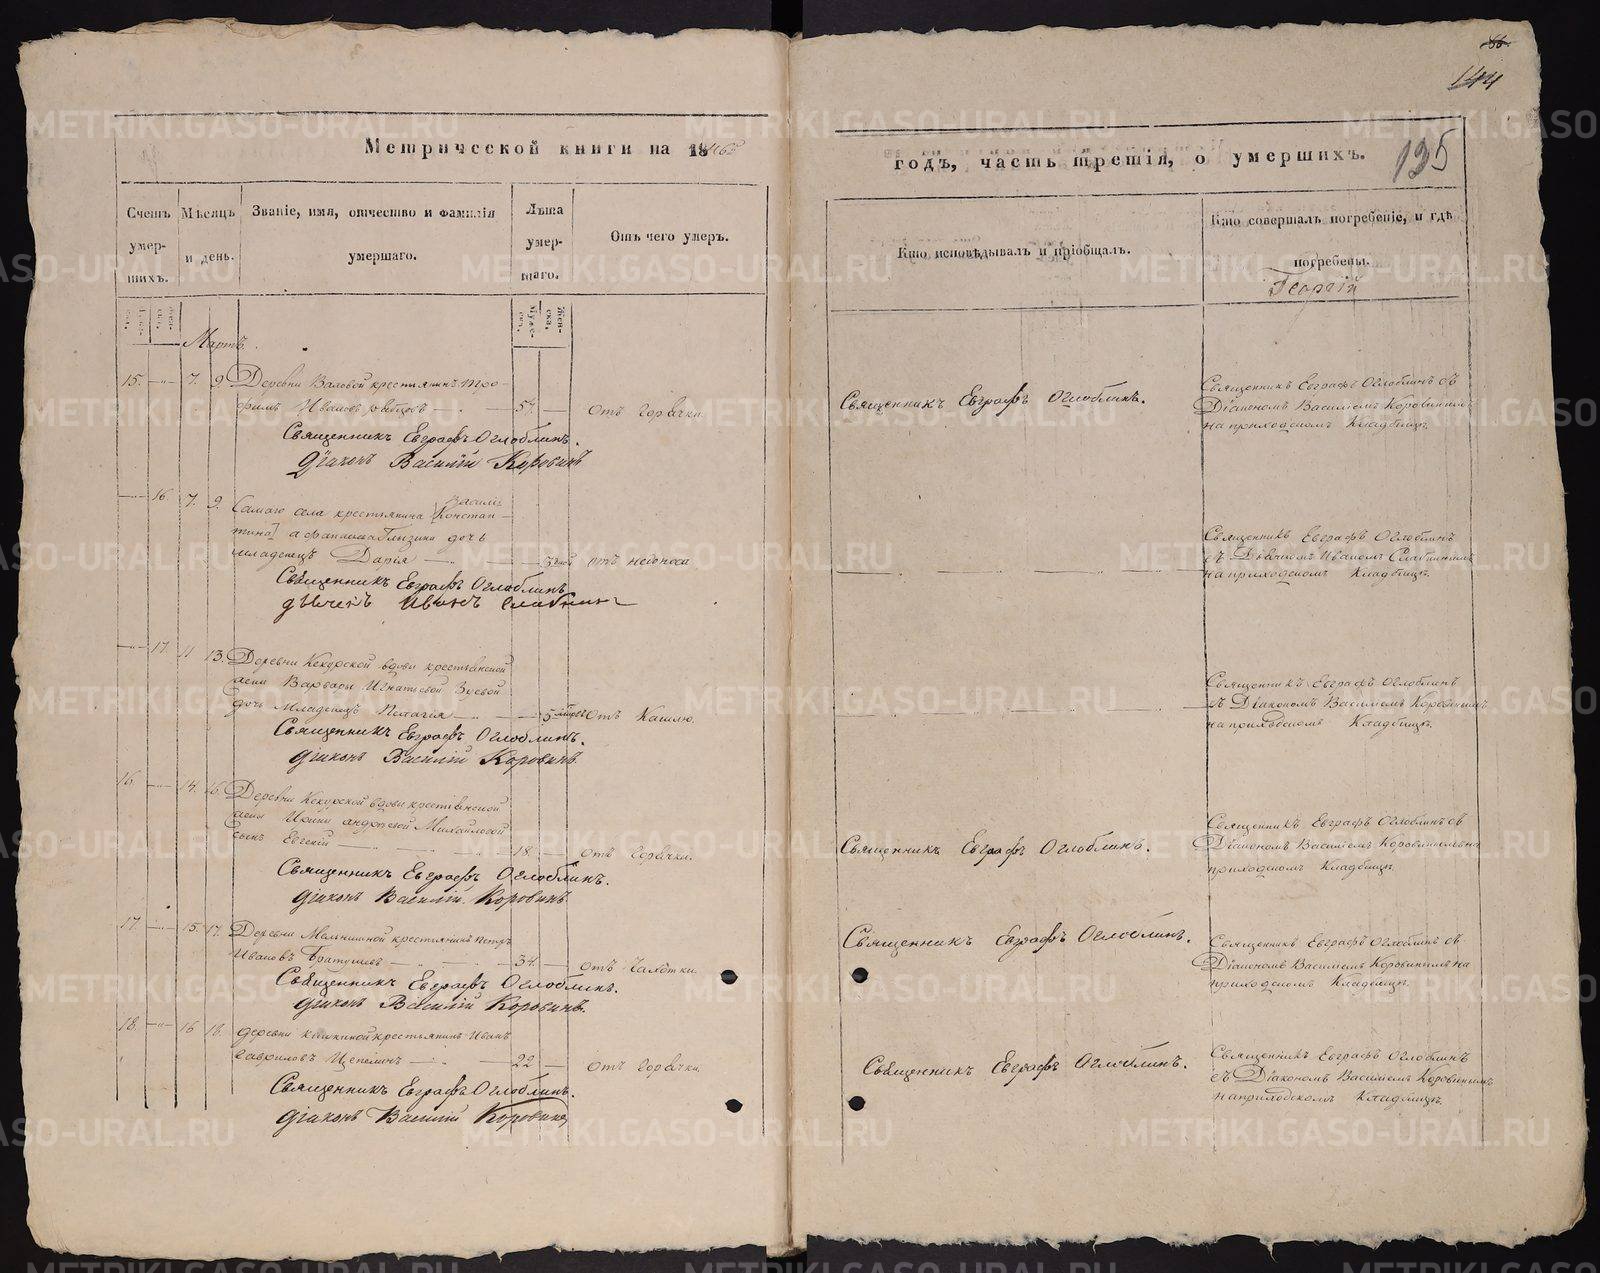 144
Метрической книги на 1865
годъ, часть третія, о умершихъ.
135
Счетъ умершихъ.
Мѣсяцъ и день.
Званіе, имя, отчество и фамилія умершаго.
Лѣта умершаго.
Отъ чего умеръ.
Кто исповѣдывалъ и пріобщалъ.
Кто совершалъ погребеніе, и гдѣ погребены.
Георгій
Мартъ.
15. 7. 9. Деревни Валовой крестьянинъ Тро-
фимъ Ивановъ 54. отъ Горячки.
Священникъ Евграфъ Оглоблинъ.
Діаконъ Василій Коровинъ
Священникъ Евграфъ Оглоблинъ.
Священникъ Евграфъ Оглоблинъ съ
Діакономъ Василіемъ Коровинымъ
на приходскомъ Кладбищѣ.
16. 7. 9. Самаго села крестьянина
дочь
младенецъ Дарія отъ недоноса
Священникъ Евграфъ Оглоблинъ
дьячекъ Иванъ
Священникъ Евграфъ Оглоблинъ
съ Дьячкомъ Иваномъ
на приходскомъ Кладбищѣ.
17. 11 13. Деревни Кекурской вдовы крестьянской
жены Варвары Игнатьевой Зуевой
дочь Младенецъ Пелагія 5 отъ Кашлю.
Священникъ Евграфъ Оглоблинъ.
діаконъ Василій Коровинъ.
Священникъ Евграфъ Оглоблинъ
съ Діакономъ Василіемъ Коровинымъ
на приходскомъ Кладбищѣ.
16. 14. 16. Деревни Кекурской вдовы крестьянской
жены Ирины Андреевой Михайловой
сынъ Евгеній 18. отъ Горячки.
Священникъ Евграфъ Оглоблинъ.
діаконъ Василій Коровинъ.
Священникъ Евграфъ Оглоблинъ.
Священникъ Евграфъ Оглоблинъ съ
Діакономъ Василіемъ Коровинымъ на
приходскомъ Кладбищѣ.
17. 15. 17. Деревни Мельнишной крестьянинъ Петръ
Ивановъ Братушевъ 34. отъ Чахотки.
Священникъ Евграфъ Оглоблинъ.
діаконъ Василій Коровинъ.
Священникъ Евграфъ Оглоблинъ.
Священникъ Евграфъ Оглоблинъ съ
Діакономъ Василіемъ Коровинымъ на
приходскомъ Кладбищѣ.
18. 16 18. деревни крестьянинъ Иванъ
Гавриловъ Щепелинъ 22 отъ Горячки.
Священникъ Евграфъ Оглоблинъ.
діаконъ Василій Коровинъ
Священникъ Евграфъ Оглоблинъ.
Священникъ Евграфъ Оглоблинъ
съ Діакономъ Василіемъ Коровинымъ
на приходскомъ Кладбищѣ.
METRIKI.GASO-URAL.RU